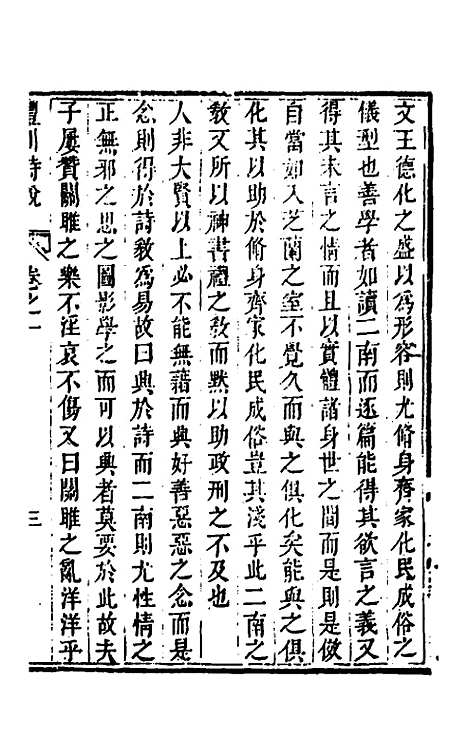 文王德化之盛以爲形容則尤脩身齊家化民成俗之
儀型也善學者如讀二南而逐篇能得其欲言之義又
得其未言之情而且以實體諸身世之間而是則是傚
自當如入芝蘭之室不覺久而與之俱化矣能與之俱
化其以助於脩身齊家化民成俗豈其淺乎此二南之
敎又所以神書禮之敎而默以助政刑之不及也
人非大賢以上必不能無藉而興好善惡惡之念而是
念則得於詩敎爲易故曰興於詩而二南則尤性情之
正無邪之思之圖影學之而可以興者莫要於此故夫
子屢贊關雎之樂不淫哀不傷又曰關雎之亂洋洋乎
澧川詩說 卷之一 三